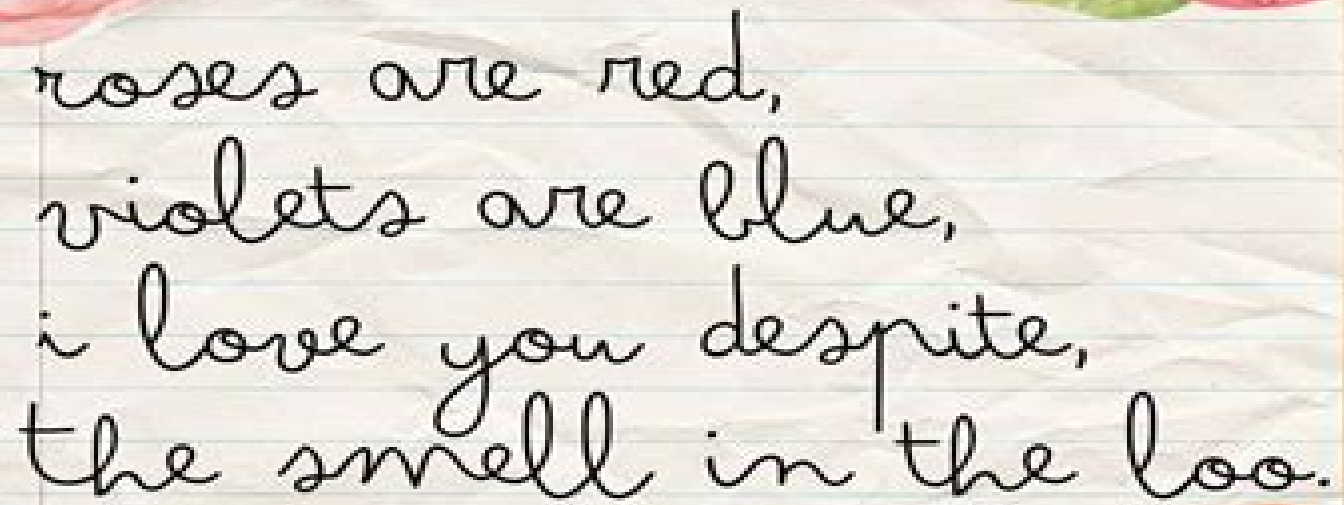 roses are red,
violets are blue,
i love you despite,
the smell in the loo.